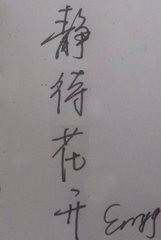 静待花开